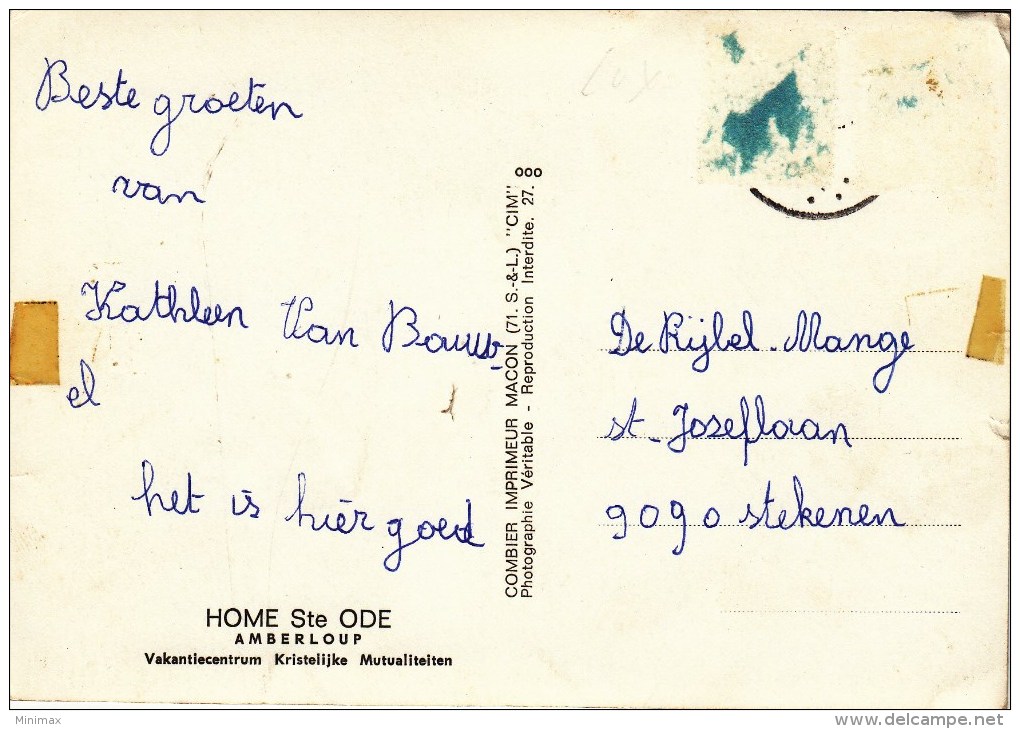 Beste groeten
van
Kathleen Van Bauw-
el
het is hier goed
HOME Ste ODE
AMBERLOUP
Vakantiecentrum Kristelijke Mutualiteiten
COMBIER IMPRIMEUR MACON (71. S.-&-L.) "CIM" ooo
Photographie Véritable - Reproduction Interdite. 27.
De Rijbel. Mange
st. Joseflaan
9090 stekenen
Minimax
www.delcampe.net